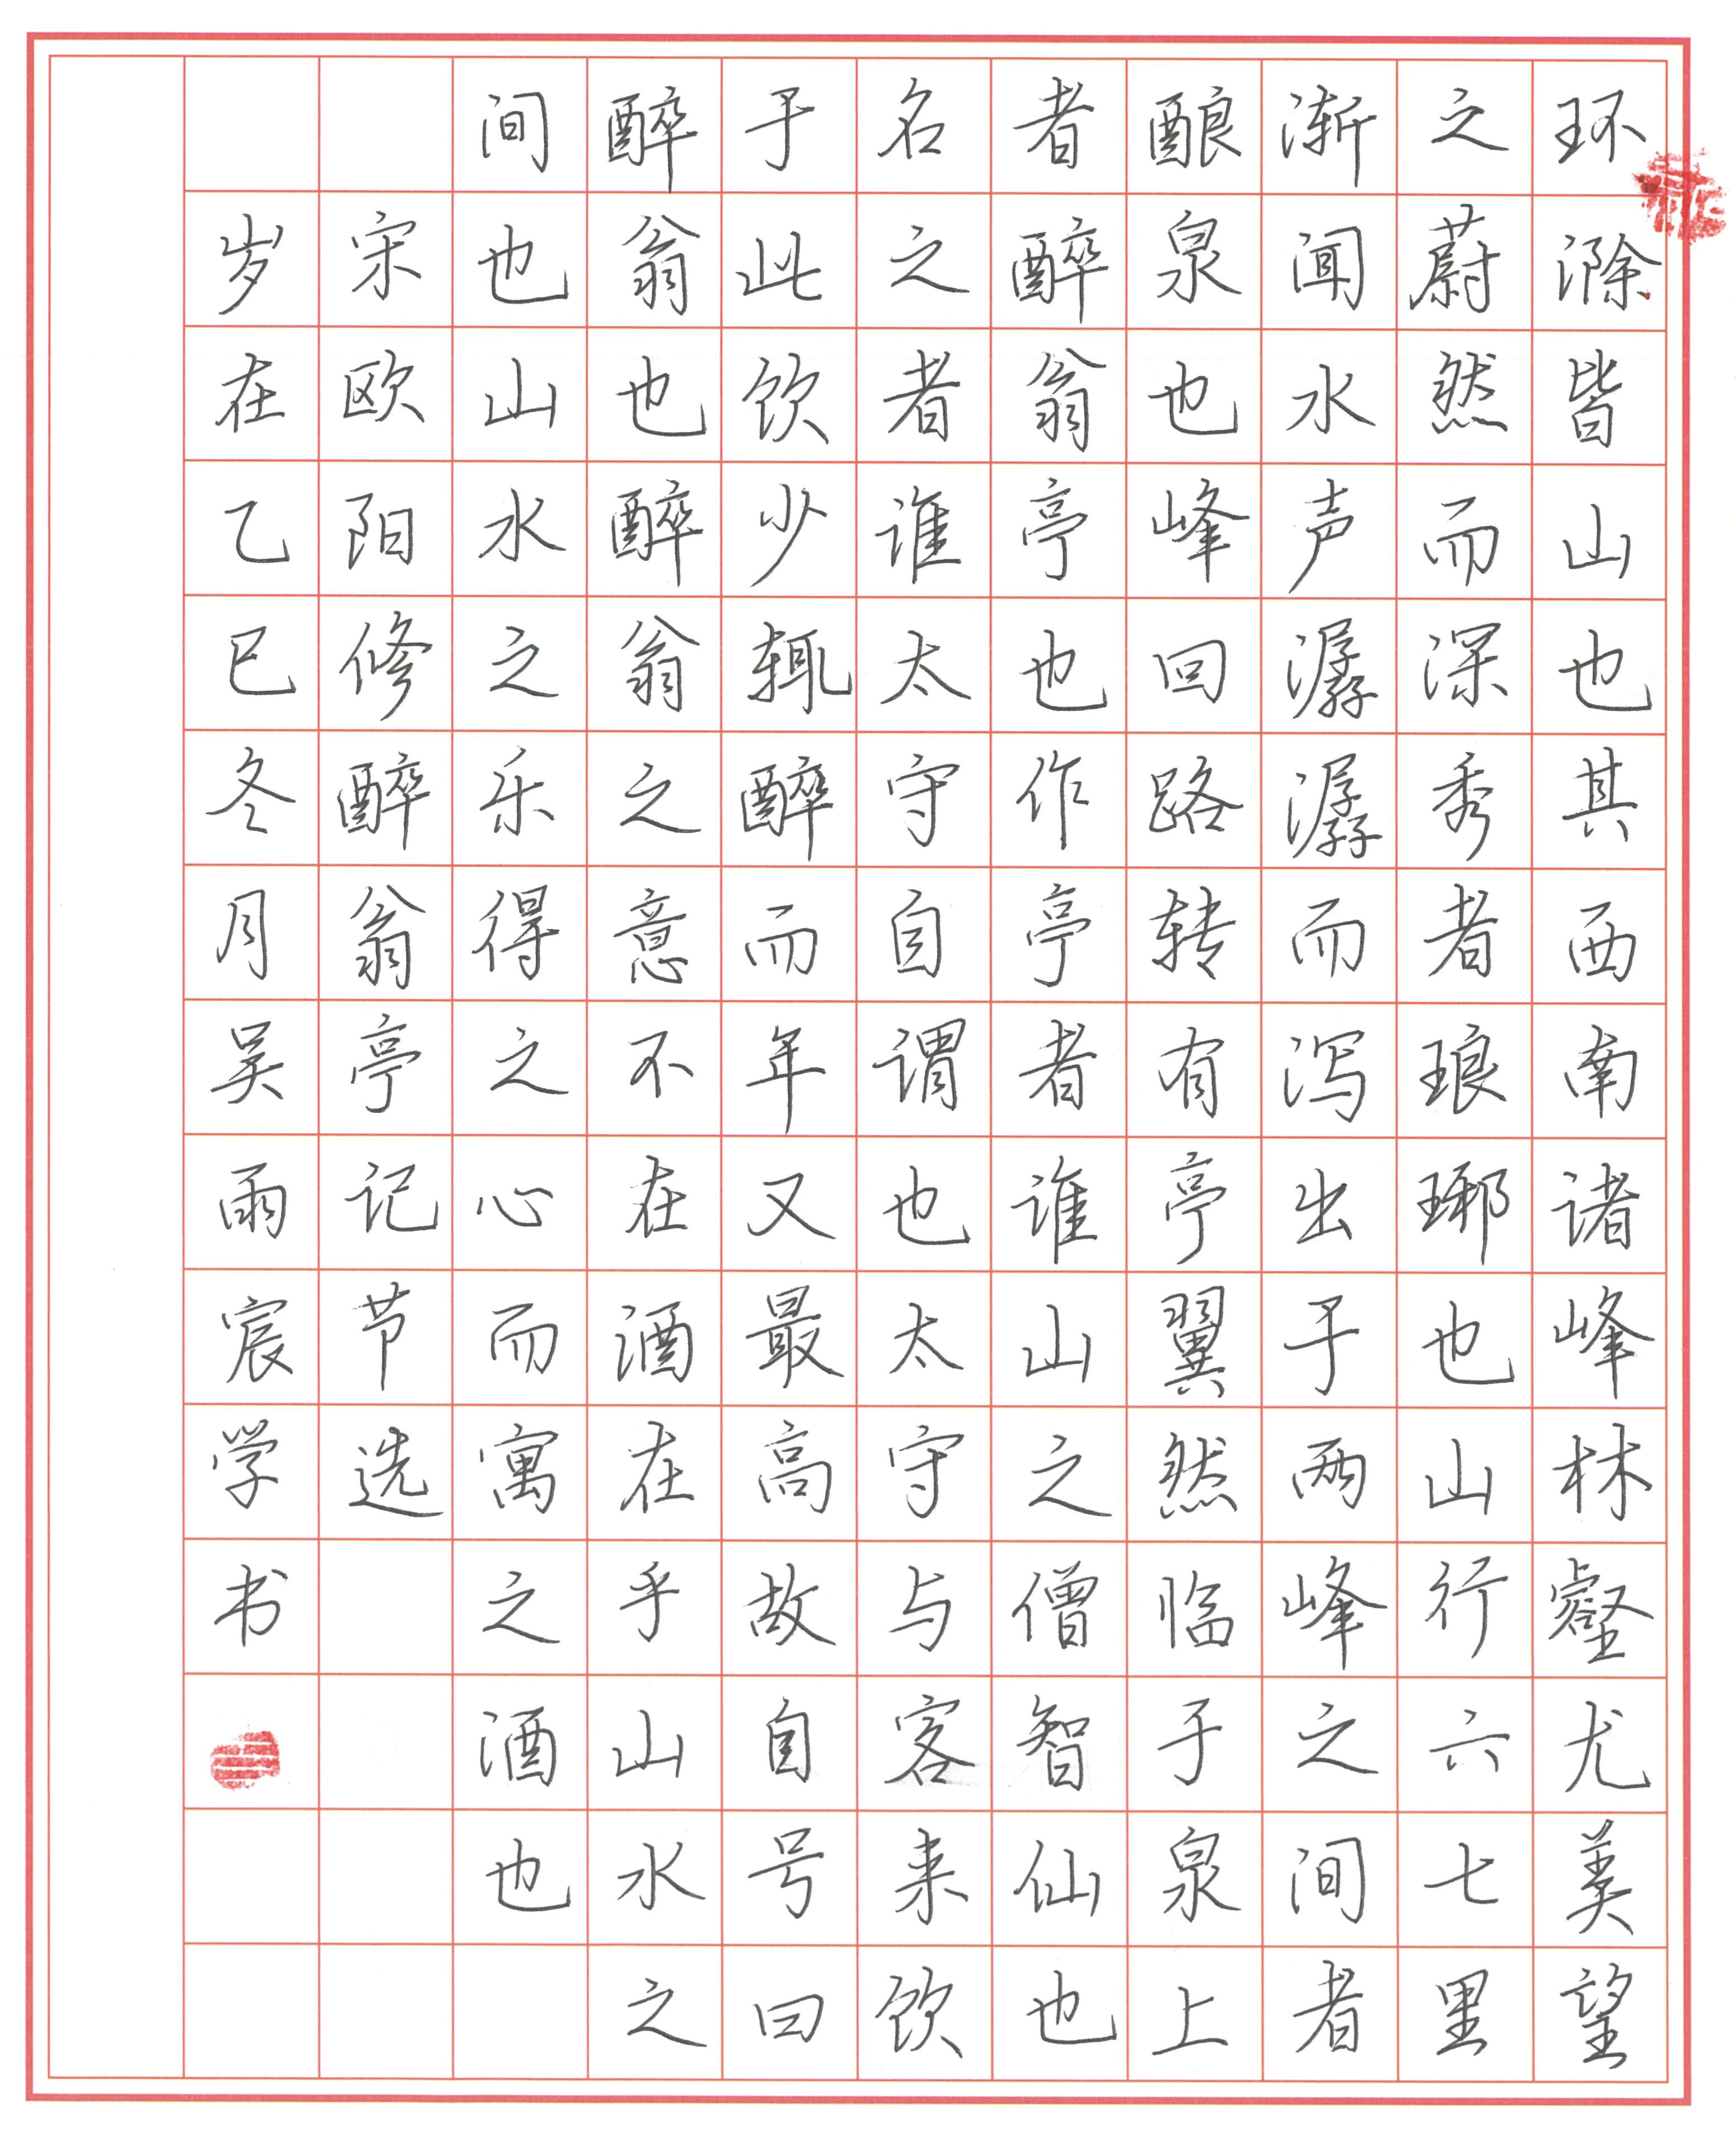 环滁皆山也其西南诸峰林壑尤美望
之蔚然而深秀者琅琊也山行六七里
渐闻水声潺潺而泻出于两峰之间者
酿泉也峰回路转有亭翼然临于泉上
者醉翁亭也作亭者谁山之僧智仙也
名之者谁太守自谓也太守与客来饮
于此饮少辄醉而年又最高故自号曰
醉翁也醉翁之意不在酒在乎山水之
间也山水之乐得之心而寓之酒也
宋欧阳修醉翁亭记节选
岁在乙巳冬月吴雨宸学书